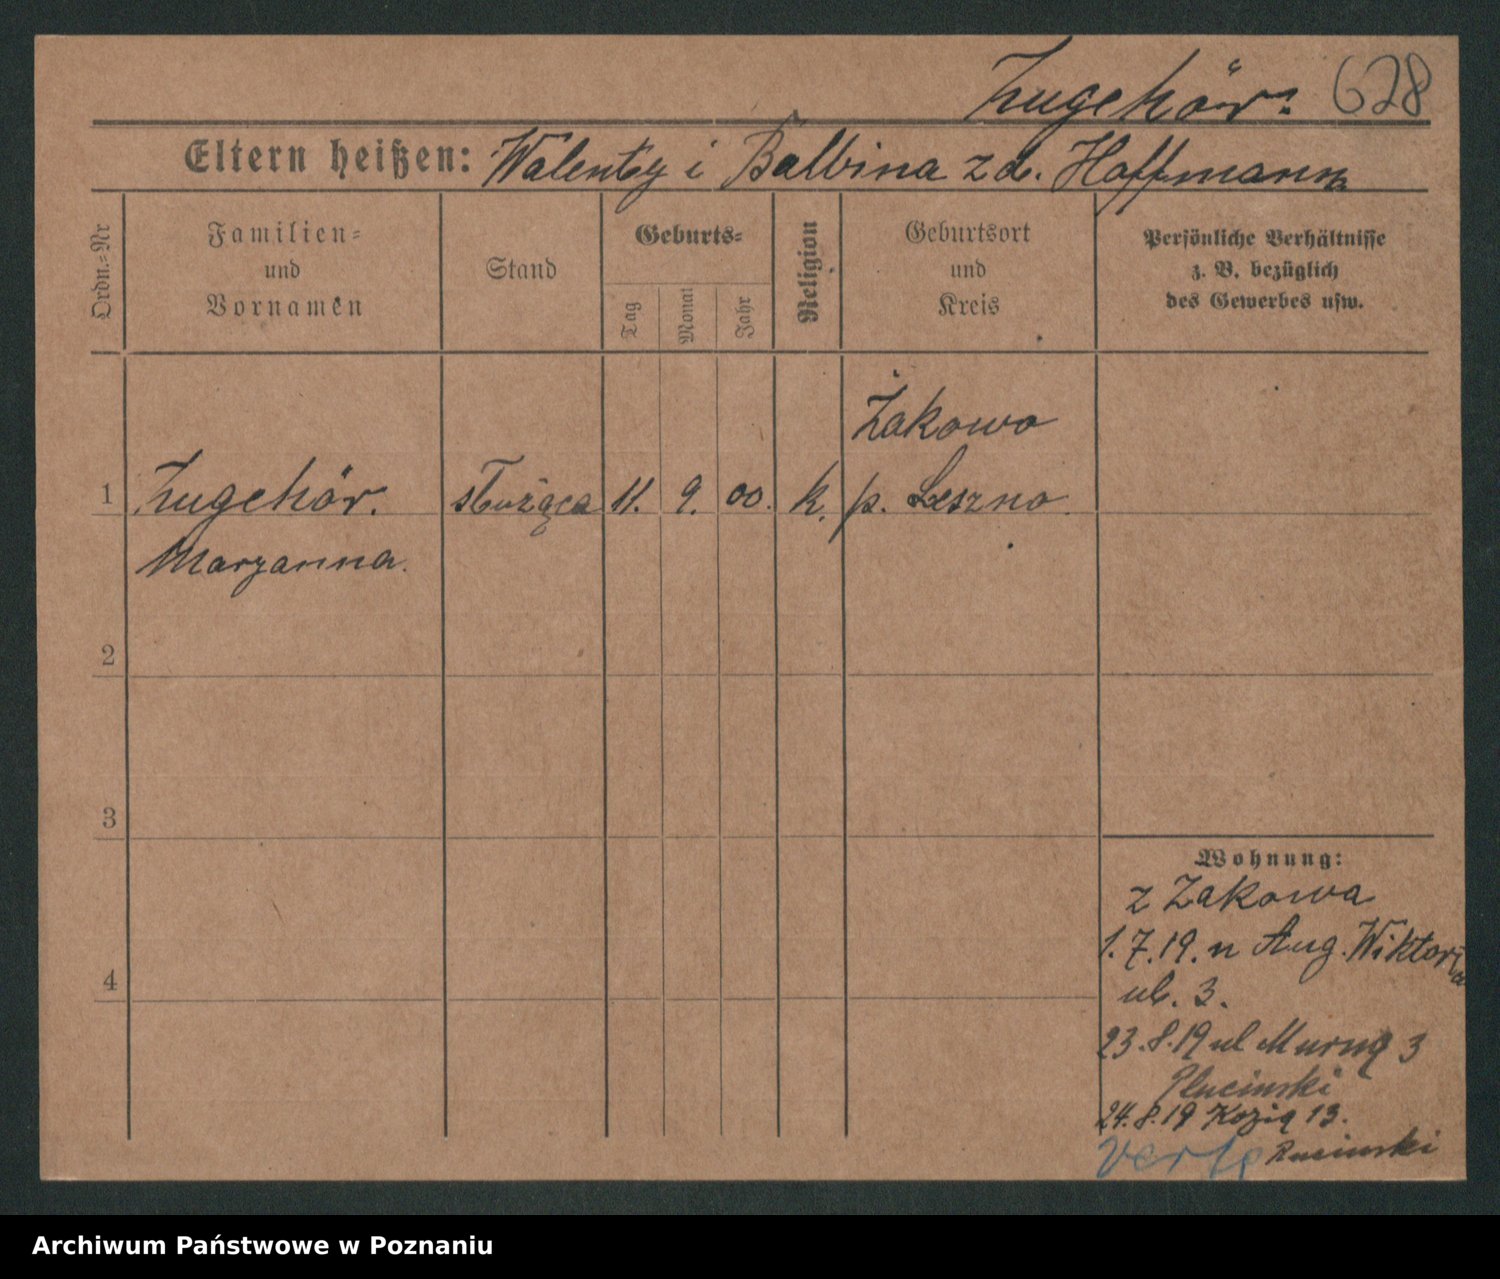 Zugehör. 628
Eltern heißen: Walenty i Balbina z d. Hoffmann
Ordn.-Nr
Familien-
und
Vornamen
Stand
Geburts-
Tag
Monat
Jahr
Religion
Geburtsort
und
Kreis
Persönliche Verhältnisse
z. B. bezüglich
des Gewerbes usw.
Żakowo
1 Zugehör. służąca 11. 9. 00. k. p. Leszno.
Maryanna.
2
3
4
Wohnung:
z Zakowa
1.7.19. n Aug. Wiktoria
ul. 3.
23.8.19 ul Murną 3
Plucinski
24.8.19 Kozią 13.
verte Rucinski
Archiwum Państwowe w Poznaniu